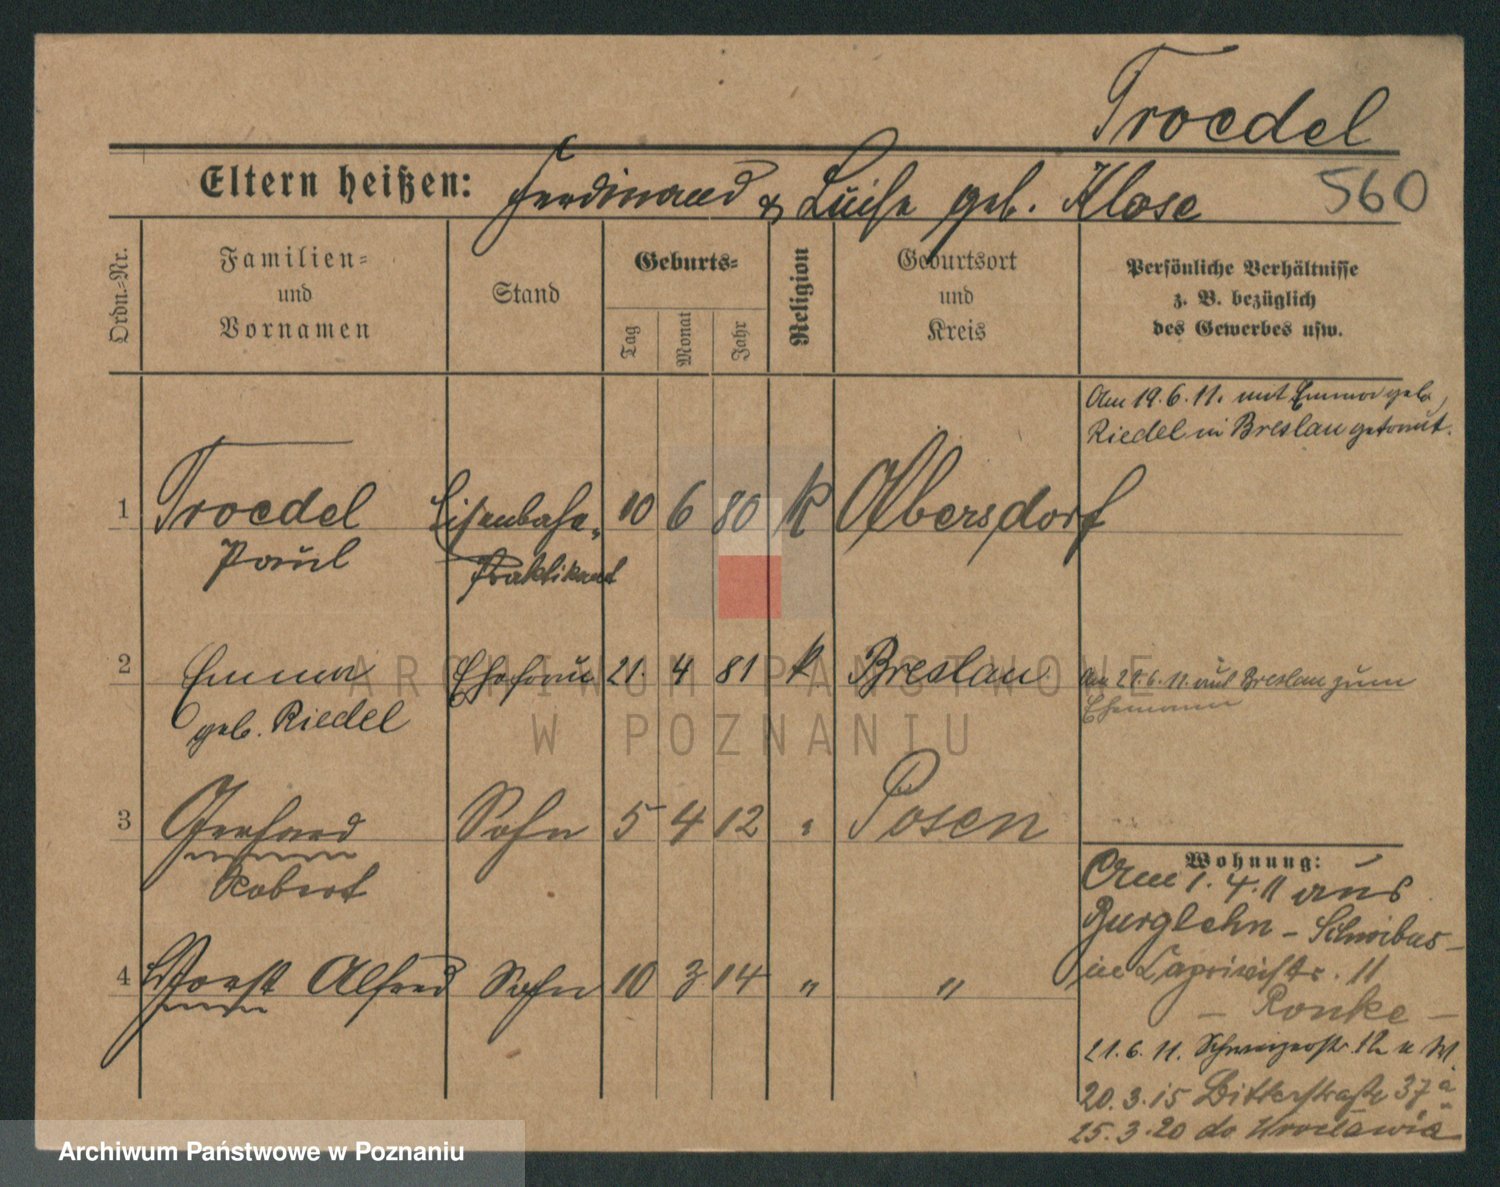 Troedel
Eltern heißen: Ferdinand & Luise geb. Klose
560
Ordn.-Nr.
Familien-
und
Vornamen
Stand
Geburts-
Tag
Monat
Jahr
Religion
Geburtsort
und
Kreis
Persönliche Verhältnisse
z. B. bezüglich
des Gewerbes usw.
Am 19.6.11. mit Emma geb.
Riedel in Breslau getraut.
1 Troedel Eisenbahn- 10 6 80 k Olbersdorf
Paul Praktikant
2 Emma Ehefrau 21. 4 81 k Breslau Am 21.6.11. aus Breslau zum
Ehemann
geb. Riedel
3 Gerhard Sohn 5 4 12 " Posen
Robert
4 Horst Alfred Sohn 10 3 14 " "
Wohnung:
Am 1.4.11 aus
Burglehn - Schwibus -
in Caprivistr. 11
- Ronke -
21.6.11. 12 u W.
20.3.15 Bitterstraße 37a
25.3.20 do Wrocławia
ARCHIWUM PAŃSTWOWE
W POZNANIU
Archiwum Państwowe w Poznaniu